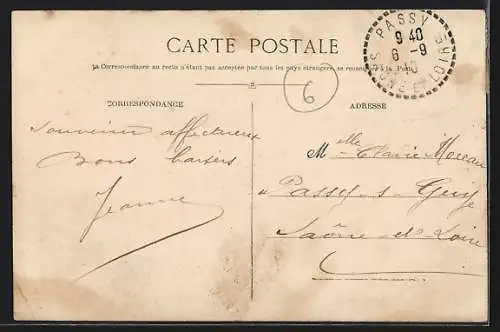 CARTE POSTALE
La Correspondance au recto n'étant pas acceptée par tous les pays étrangers, se renseigner à la Poste
6
CORRESPONDANCE
Souvenir affectueux
Bons baisers
Jeanne
ADRESSE
Melle Clarie Moreau
à Passy-s-Guye
Saône-et-Loire
PASSY
9 40
6 - 9
10
SAONE ET LOIRE